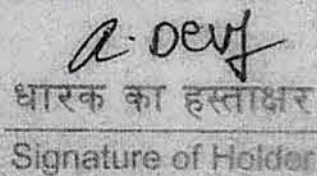 a. Devj
धारक का हस्ताक्षर
Signature of Holder